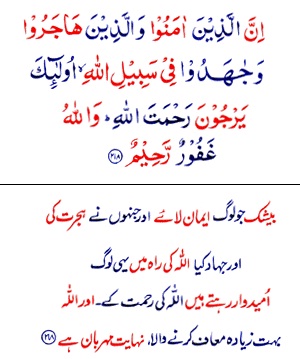 اِنَّ الَّذِيۡنَ اٰمَنُوۡا وَالَّذِيۡنَ هَاجَرُوۡا
وَجٰهَدُوۡا فِىۡ سَبِيۡلِ اللّٰهِۙ اُولٰٓٮِٕكَ
يَرۡجُوۡنَ رَحۡمَتَ اللّٰهِؕ وَاللّٰهُ
غَفُوۡرٌ رَّحِيۡمٌ ﴿۲۱۸﴾
بیشک جو لوگ ایمان لائے اور جنہوں نے ہجرت کی
اور جہاد کیا اللہ کی راہ میں یہی لوگ
اُمیدوار رہتے ہیں اللہ کی رحمت کے۔ اور اللہ
بہت زیادہ معاف کرنے والا، نہایت مہربان ہے ﴿۲۱۸﴾